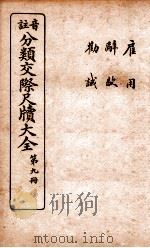 雇用
勸誡
音註
分類交際尺牘大全
第九冊